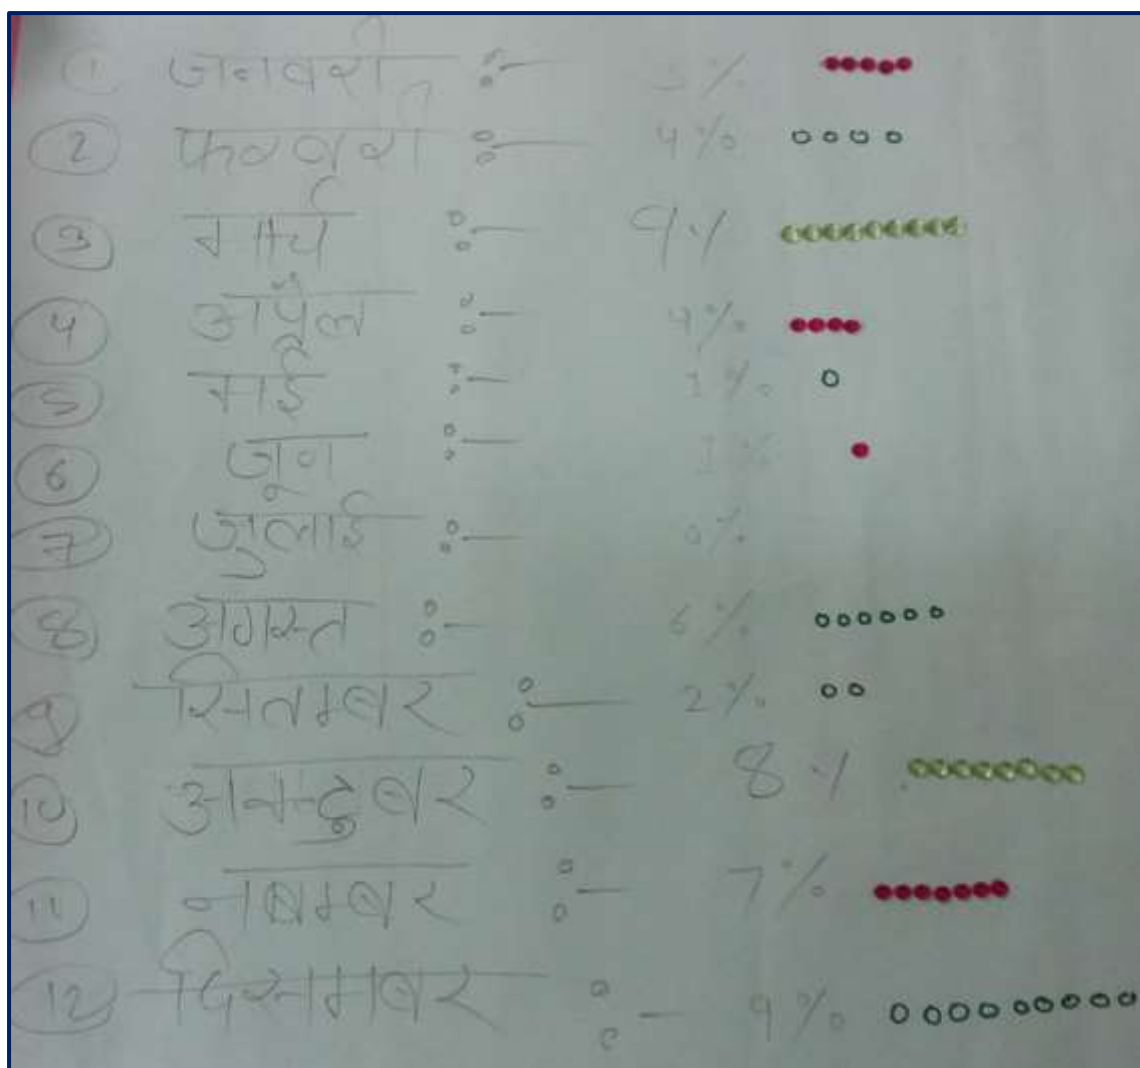 1 जनवरी :- 5%
2 फरवरी :- 4%
3 मार्च :- 9%
4 अप्रैल :- 4%
5 मई :- 1%
6 जून :- 1%
7 जुलाई :- 0%
8 अगस्त :- 6%
9 सितम्बर :- 2%
10 :- 8%
11 नबम्बर :- 7%
12 दिसम्बर :- 9%